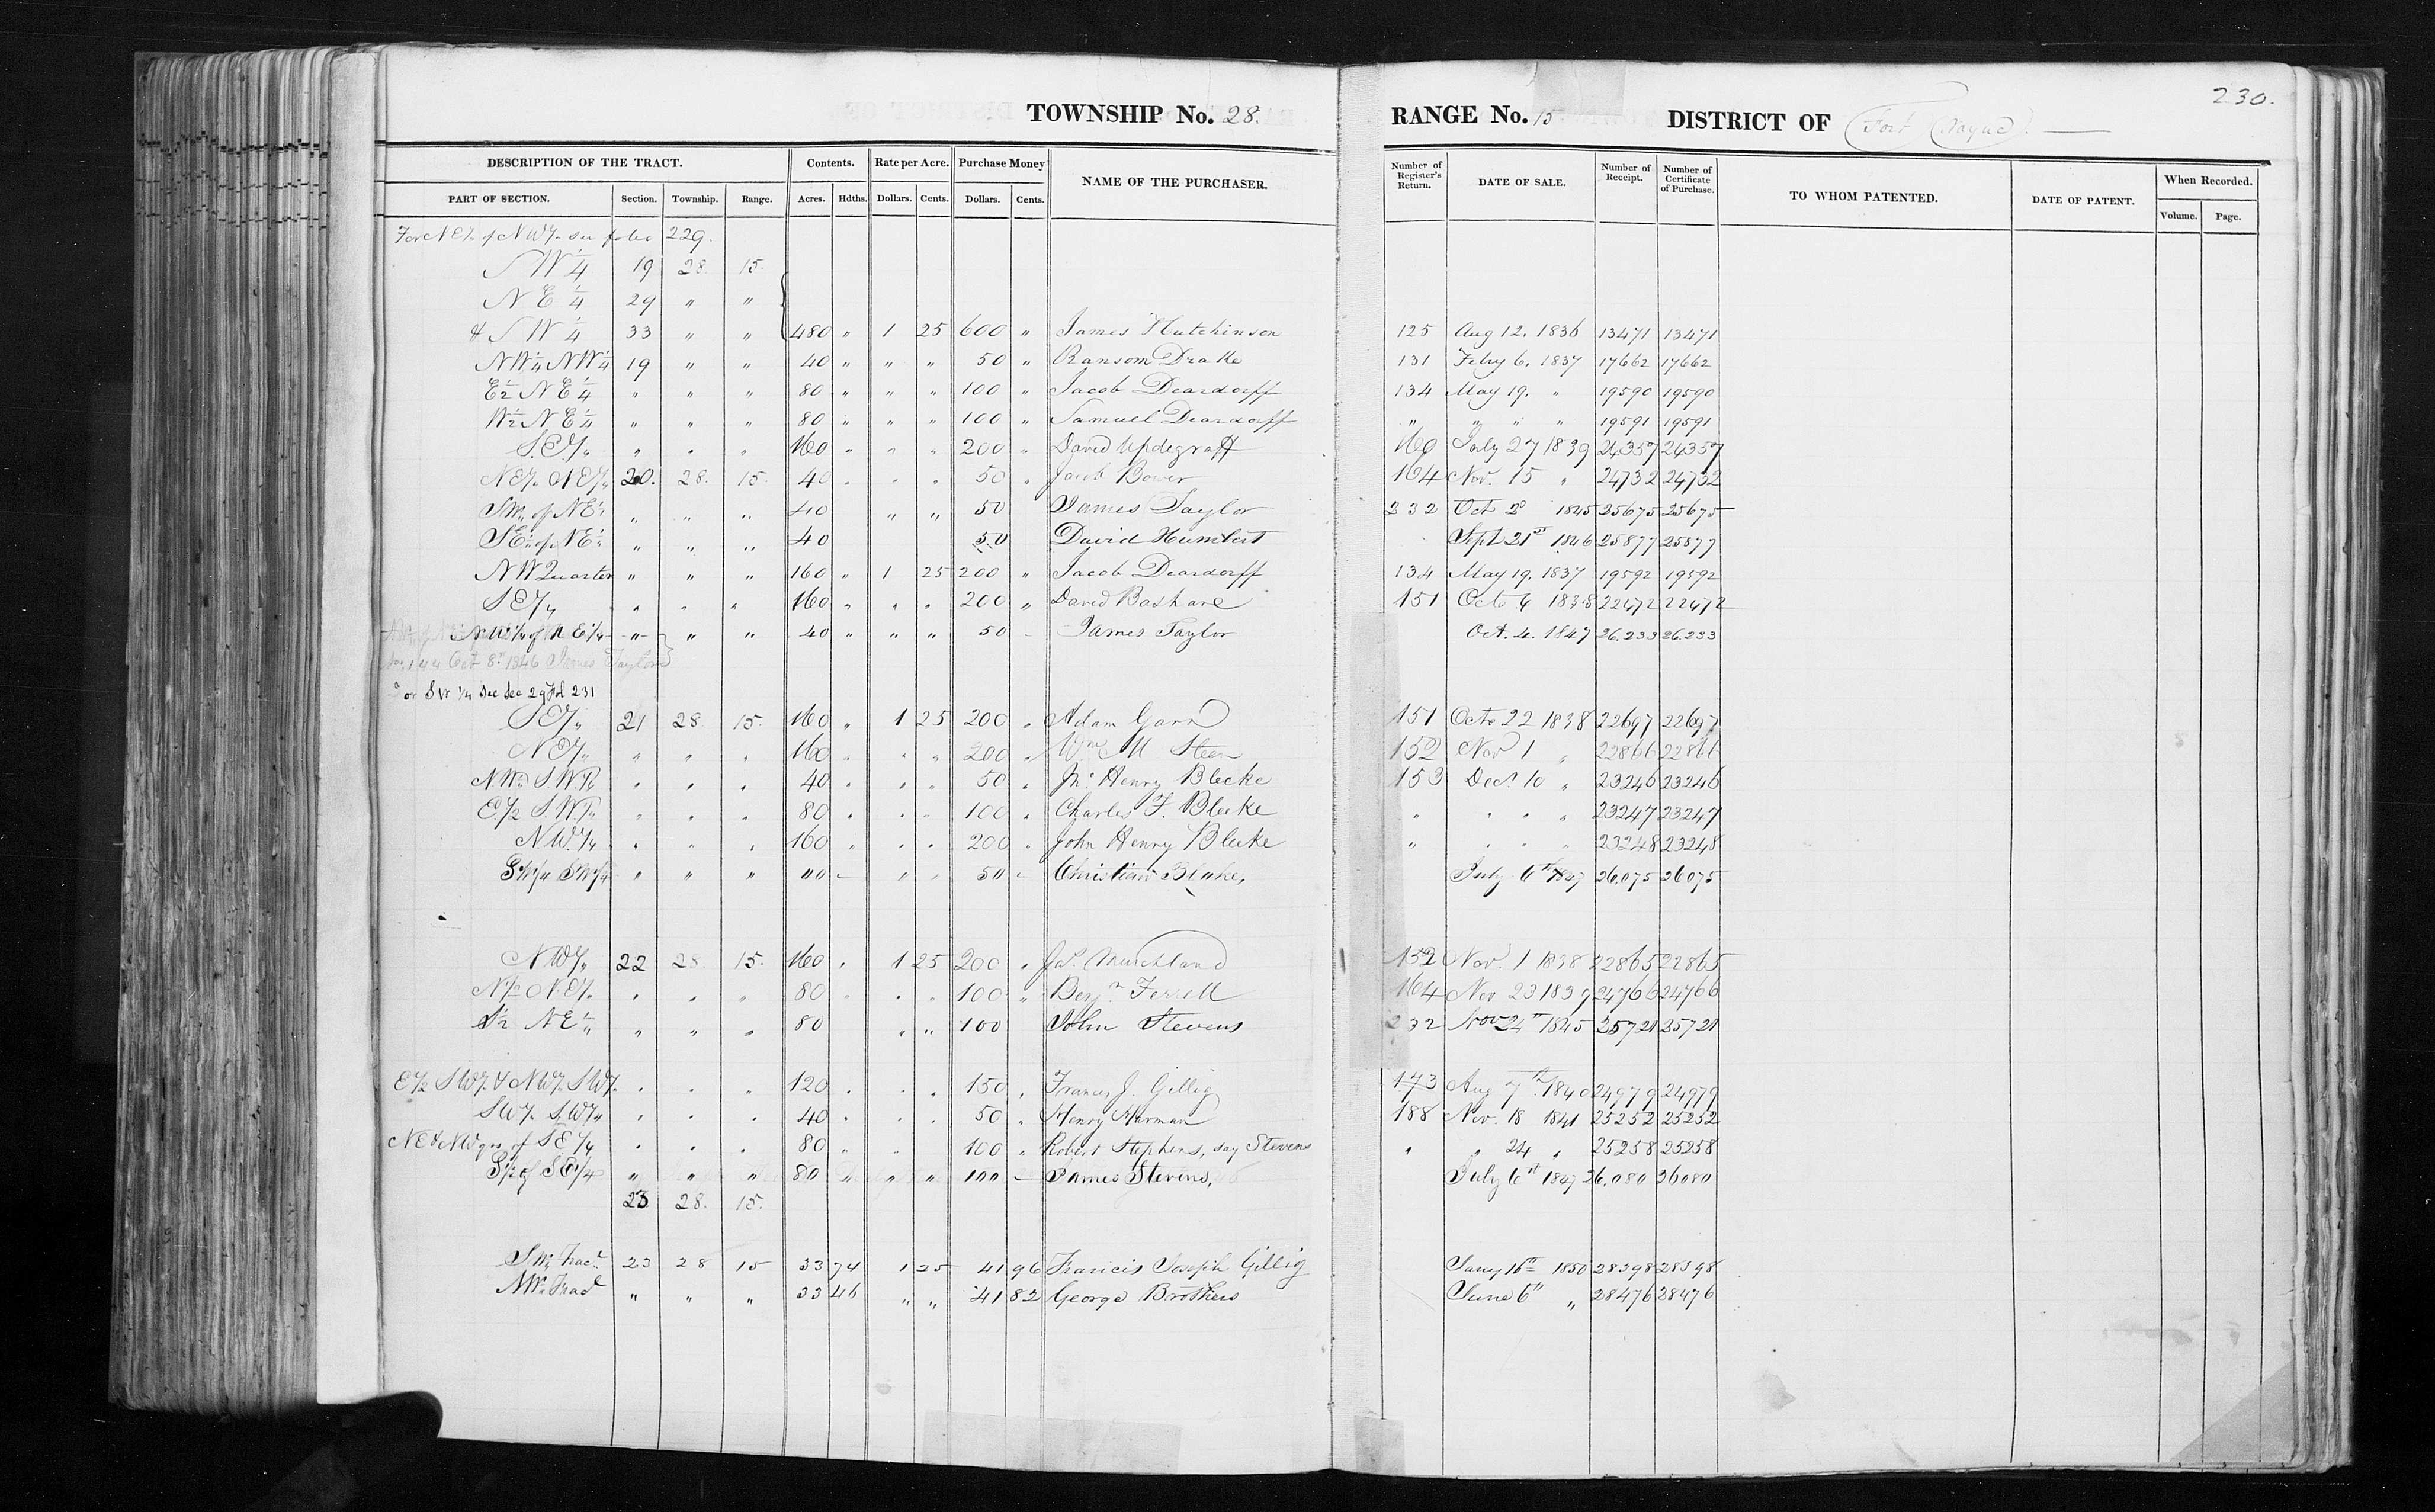 230.
TOWNSHIP No. 28. RANGE No. 15 DISTRICT OF Fort Wayne
DESCRIPTION OF THE TRACT. Contents. Rate per Acre. Purchase Money NAME OF THE PURCHASER. Number of Register's Return. DATE OF SALE. Number of Receipt. Number of Certificate of Purchase. TO WHOM PATENTED. DATE OF PATENT. When Recorded.
PART OF SECTION. Section. Township. Range. Acres. Hdths. Dollars. Cents. Dollars. Cents. Volume. Page.
For NE¼ of NW¼ see folio 229.
SW¼ 19 28 15
NE¼ 29 " "
& SW¼ 33 " " 480 " 1 25 600 " James Hutchinson 125 Aug 12. 1836 13471 13471
NW¼ NW¼ 19 " " 40 " " " 50 " Ransom Drake 131 Feby 6. 1837 17662 17662
E½ NE¼ " " " 80 " " " 100 " Jacob Deardorff 134 May 19. " 19590 19590
W½ NE¼ " " " 80 " " " 100 " Samuel Deardorff " " " " 19591 19591
S.E.¼ " " " 160 " " " 200 " David Updegraff 160 July 27 1839 24357 24357
NE¼ NE¼ 20. 28. 15. 40 " " " 50 " Jacob Bower 164 Nov. 15 " 24732 24732
SW¼ of NE¼ " " " 40 " " 50 James Taylor 232 Oct 2d 1845 25675 25675
SE¼ of NE¼ " " " 40 50 David Humbert Sept 21st 1846 25877 25877
NW Quarter " " " 160 " 1 25 200 " Jacob Deardorff 134 May 19. 1837 19592 19592
SE¼ " " " 160 " " " 200 " David Bashare 151 Octo 4 1838 22472 22472
NW¼ of NE¼ " " " 40 " " " 50 - James Taylor Oct. 4. 1847 26.233 26.233
Oct 8th 1846 James Taylor
For SW ¼ See Sec 29 Fol 231
SE¼ 21 28 15. 160 " 1 25 200 " Adam Garn 151 Octo 22 1838 22697 22697
NE¼ " " " 160 " " " 200 " Wm M Steen 152 Nov 1 " 22866 22866
NW¼ S.W.¼ " " " 40 " " " 50 " Jno. Henry Blecke 153 Decr 10 " 23246 23246
E½ S.W.¼ " " " 80 " " " 100 " Charles F. Blecke " " " " 23247 23247
NW.¼ " " " 160 " " " 200 " John Henry Blecke " " " " 23248 23248
SW¼ SW¼ " " " 40 - " " 50 - Christian Blake, July 6th 1847 26.075 26075
NW¼ 22 28. 15. 160 " 1 25 200 " Jas. Murchland 152 Nov. 1 1838 22865 22865
N½ NE¼ " " " 80 " " " 100 " Benjn Ferrell 164 Nov 23 1839 24766 24766
S½ NE¼ " " " 80 " " 100 John Stevens 232 Nov 24th 1845 25721 25721
E½ SW¼ & NW¼ SW¼ " " " 120 " " " 150 " Francis J. Gillig 173 Aug 7th 1840 24979 24979
SW¼ SW¼ " " " 40 " " " 50 " Henry Harman 188 Nov. 18 1841 25252 25252
NE & NW qrs of SE¼ " " " 80 " " 100 " Robert Stephens, say Stevens " " 24 " 25258 25258
S½ of SE¼ " " " 80 " " " 100 - James Stevens, July 6th 1847 26.080 26080
23 28. 15.
SW Fracl 23 28 15 33 74 1 25 41 96 Francis Joseph Gillig Jany 16th 1850 28398 28398
NW Frac " " " 33 46 " " 41 82 George Brothers June 6th " 28476 28476